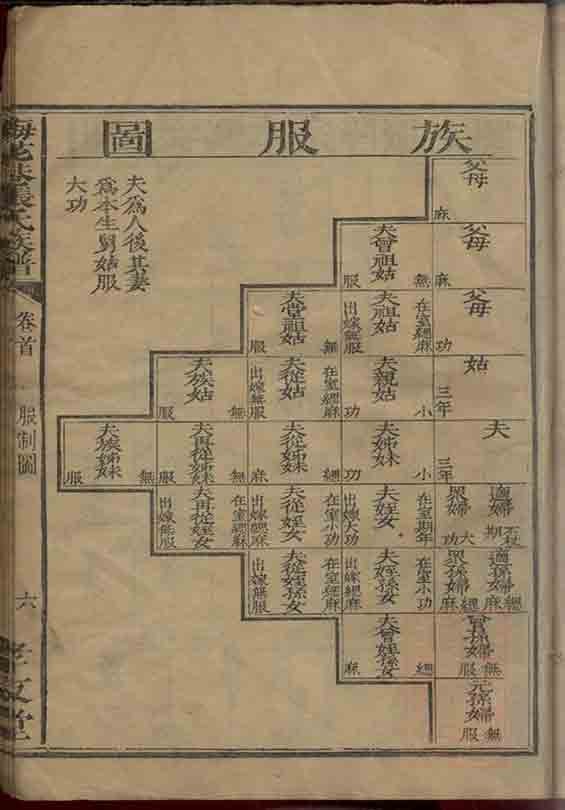 族服圖
父母
麻
父母
麻
父母
功
姑
三年
夫
三年
適婦
不杖
期
眾婦
大
功
適孫婦
緦
麻
眾孫婦
緦
麻
曾孫婦
無
服
元孫婦
無
服
夫曾祖姑
無
服
夫祖姑
在室緦麻
出嫁無服
夫親姑
小
功
夫姊妹
小
功
夫姪女
在室期年
出嫁大功
夫姪孫女
在室小功
出嫁緦麻
夫曾姪孫女
緦
麻
夫堂祖姑
無
服
夫從姑
在室緦麻
出嫁無服
夫從姊妹
緦
麻
夫從姪女
在室小功
出嫁緦麻
夫從姪孫女
在室緦麻
出嫁無服
夫族姑
無
服
夫再從姊妹
無
服
夫再從姪女
在室緦麻
出嫁無服
夫族姊妹
無
服
夫為人後其妻
為本生舅姑服
大功
張氏族譜
卷首
服制圖
六
孝友堂